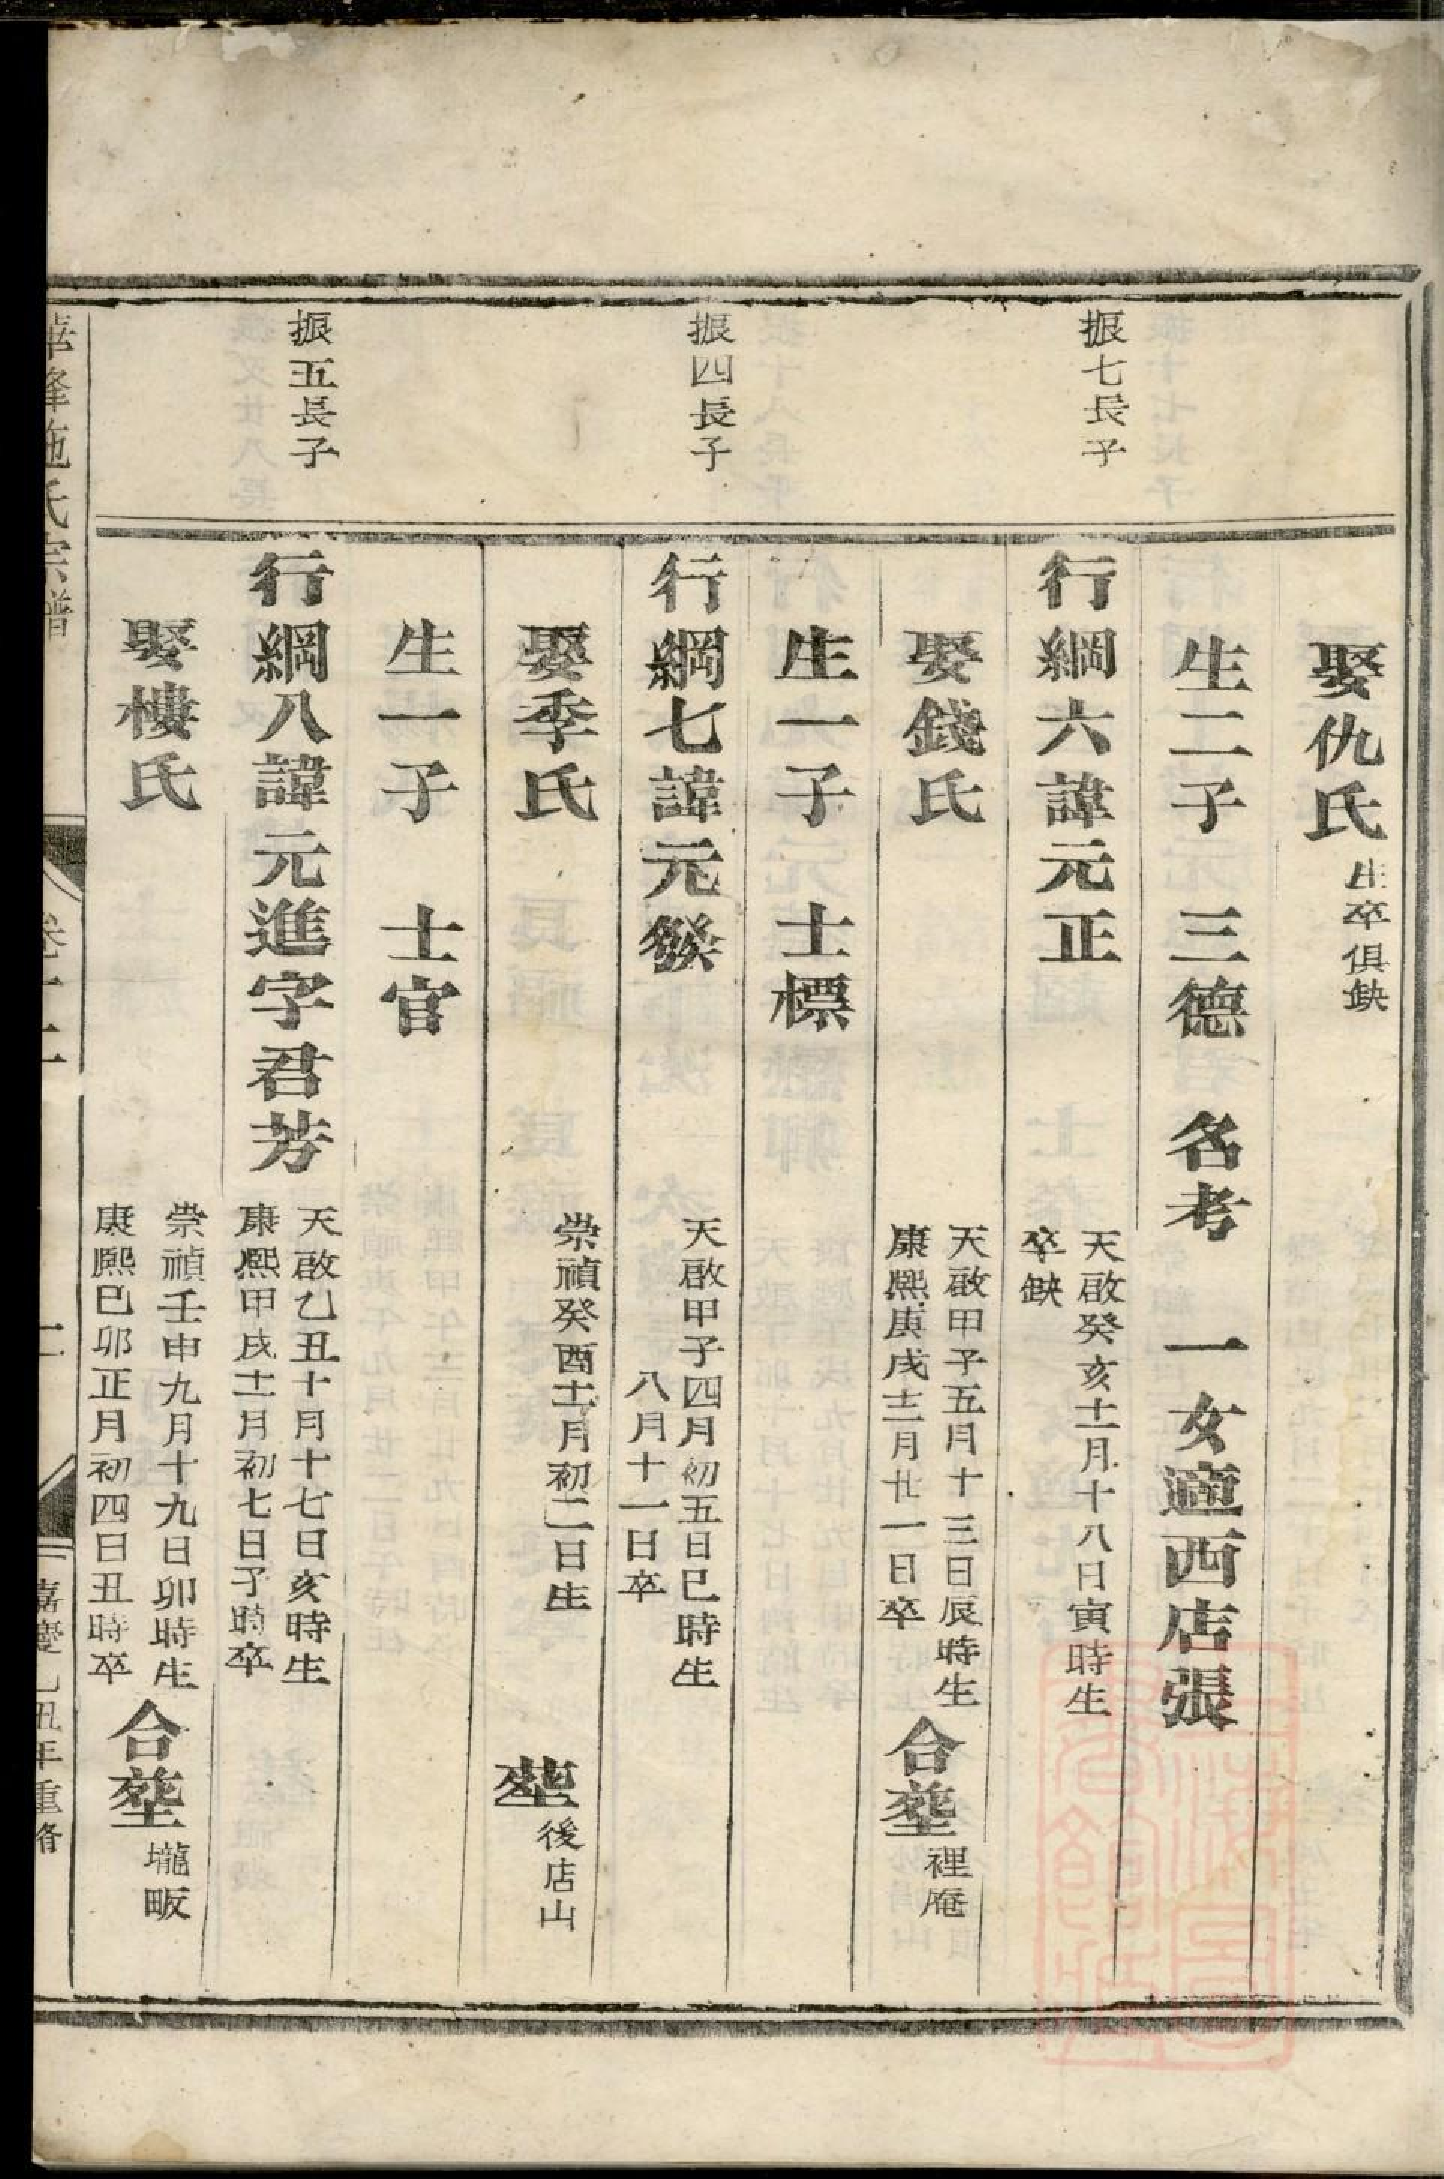 娶仇氏 生卒俱缺
生二子 三德 名考 一女適西店張
振七長子
行綱六諱元正 天啟癸亥十一月十八日寅時生
卒缺
娶錢氏 天啟甲子五月十三日辰時生
康熙庚戌十二月廿一日卒
合塟 裡庵
生一子 士標
振四長子
行綱七諱元發 天啟甲子四月初五日巳時生
八月十一日卒
娶季氏 崇禎癸酉十一月初二日生
塟 後店山
生一子 士官
振五長子
行綱八諱元進字君芳 天啟乙丑十月十七日亥時生
康熙甲戌十一月初七日子時卒
娶樓氏 崇禎壬申九月十九日卯時生
康熙己卯正月初四日丑時卒
合塟 壠畈
華峰施氏宗譜
嘉慶乙丑年重脩